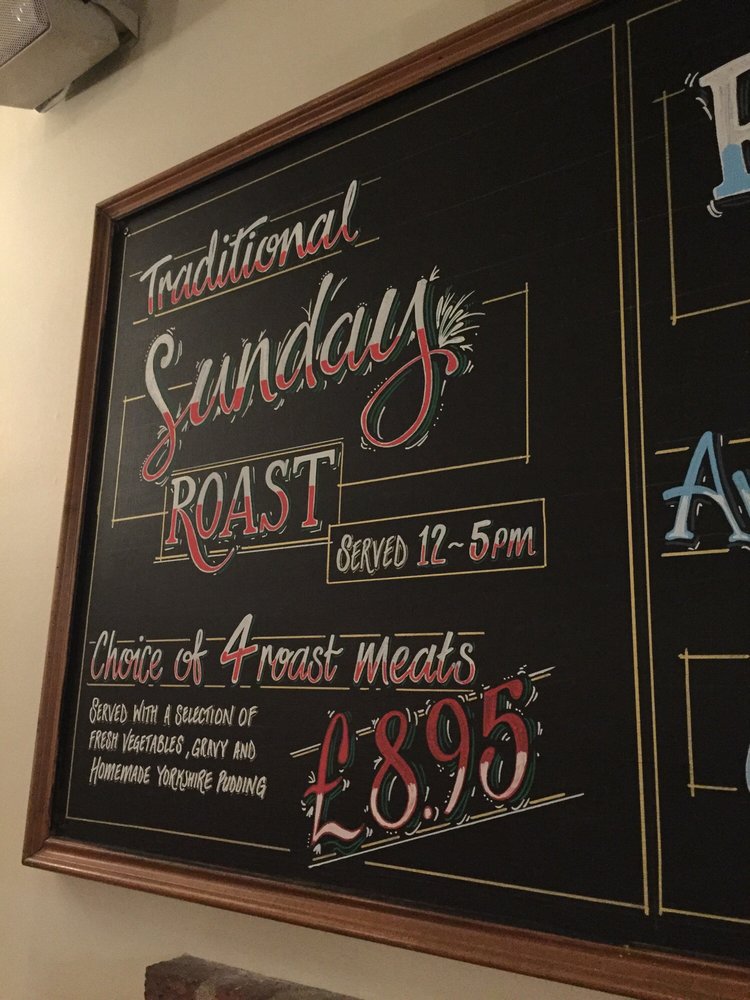 Traditional
Sunday
ROAST
SERVED 12~5PM
Choice of 4 roast meats
SERVED WITH A SELECTION OF
FRESH VEGETABLES, GRAVY AND
HOMEMADE YORKSHIRE PUDDING
£8.95